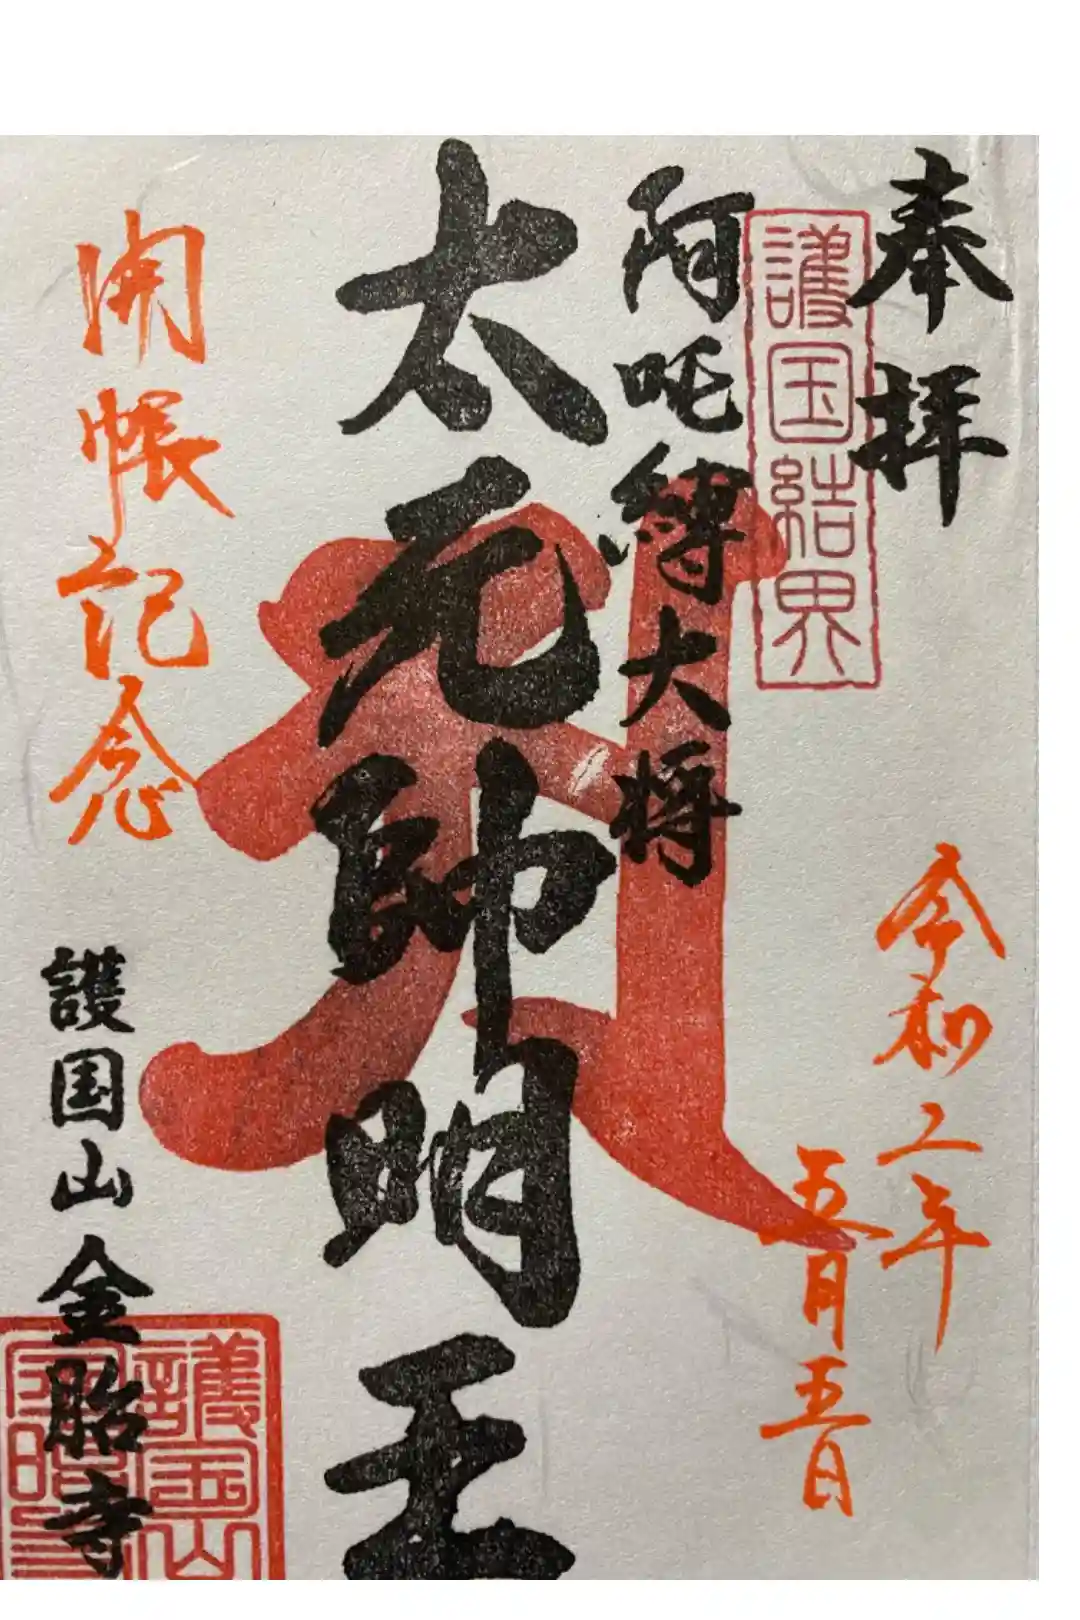 奉拝
護国結界
令和二年
五月五日
阿吒縛大将
太元帥明王
開帳記念
護国山金胎寺
護国山